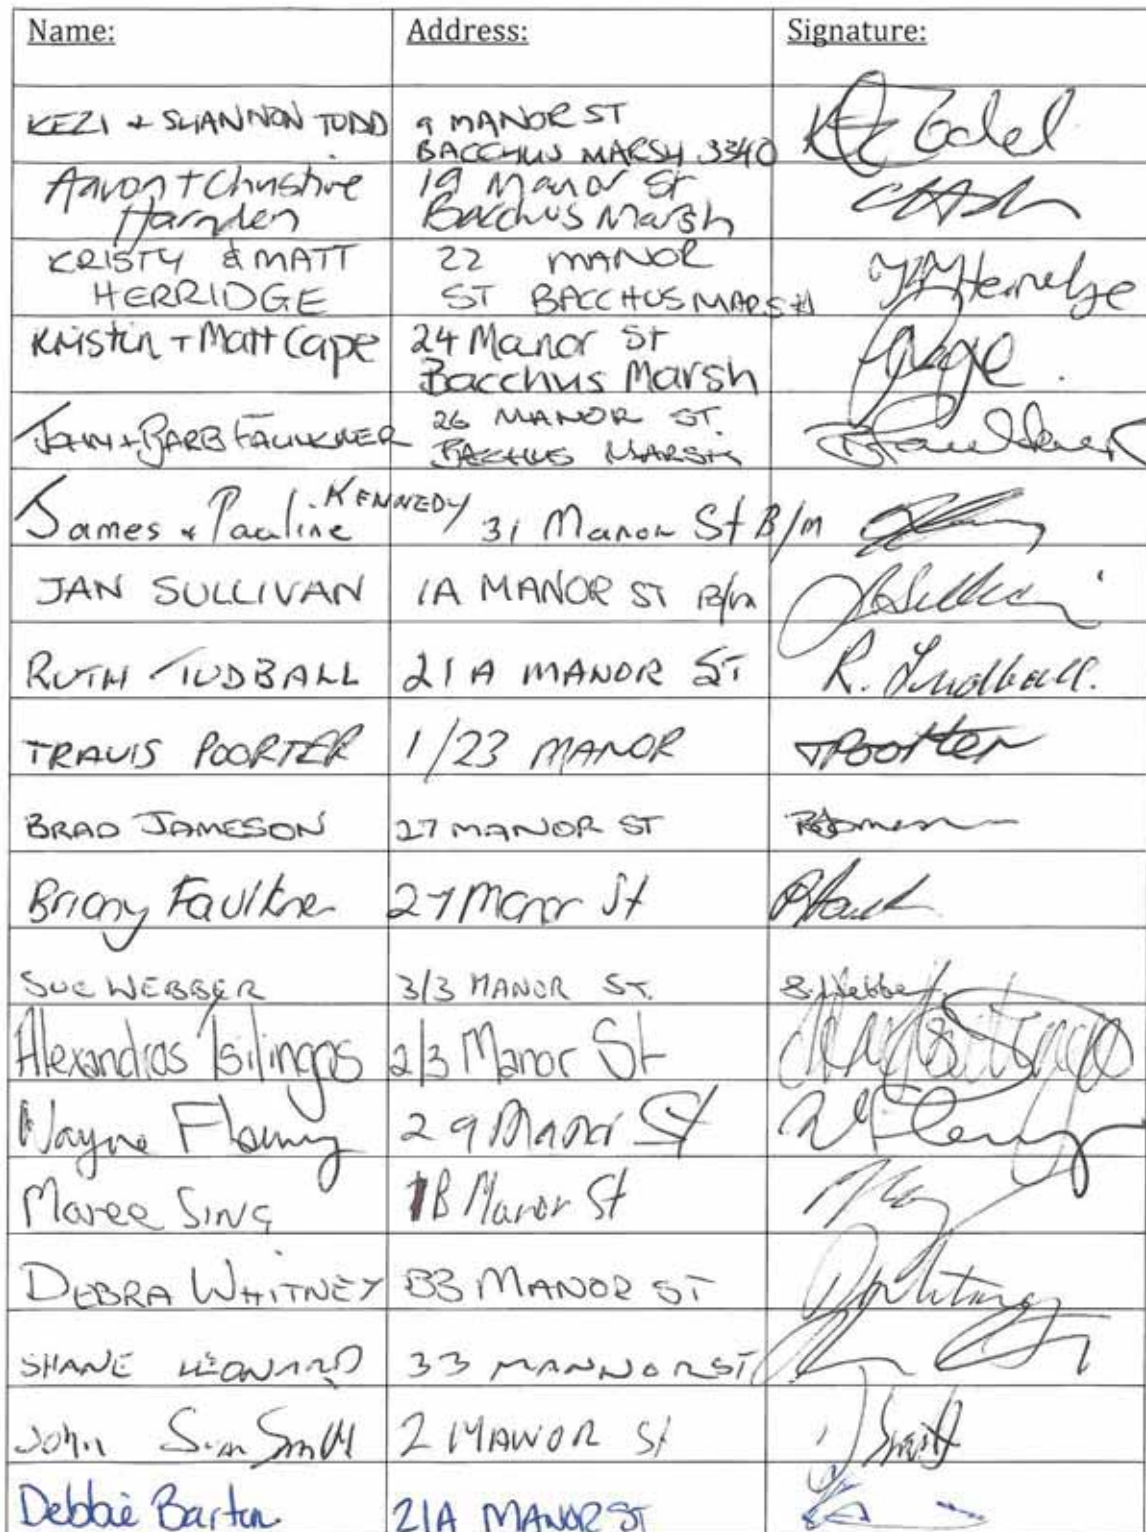 Name: Address: Signature:
KEZI + SHANNON TODD 9 MANOR ST
BACCHUS MARSH 3340
Aaron + Christine 19 Manor St
Harnden Bacchus Marsh
KRISTY & MATT 22 MANOR
HERRIDGE ST BACCHUS MARSH
Kristin + Matt Cape 24 Manor St
Bacchus Marsh
JOHN + BARB FAULKNER 26 MANOR ST. BFaulkner
BACCHUS MARSH
James + Pauline KENNEDY 31 Manor St B/M
JAN SULLIVAN 1A MANOR ST B/M
RUTH TUDBALL 21A MANOR ST R. Tudball.
TRAVIS POORTER 1/23 MANOR TPoorter
BRAD JAMESON 27 MANOR ST
Briony Faulkner 27 Manor St
SUE WEBBER 3/3 MANOR ST. S. Webber
Alexandros Tsilingos 2/3 Manor St
Wayne Fleming 29 Manor St
Maree SING 1B Manor St
DEBRA WHITNEY 33 MANOR ST DWhitney
SHANE LEONARD 33 MANNOR ST
John Sim Smith 2 MANOR St J Smith
Debbie Barton 21A MANOR ST